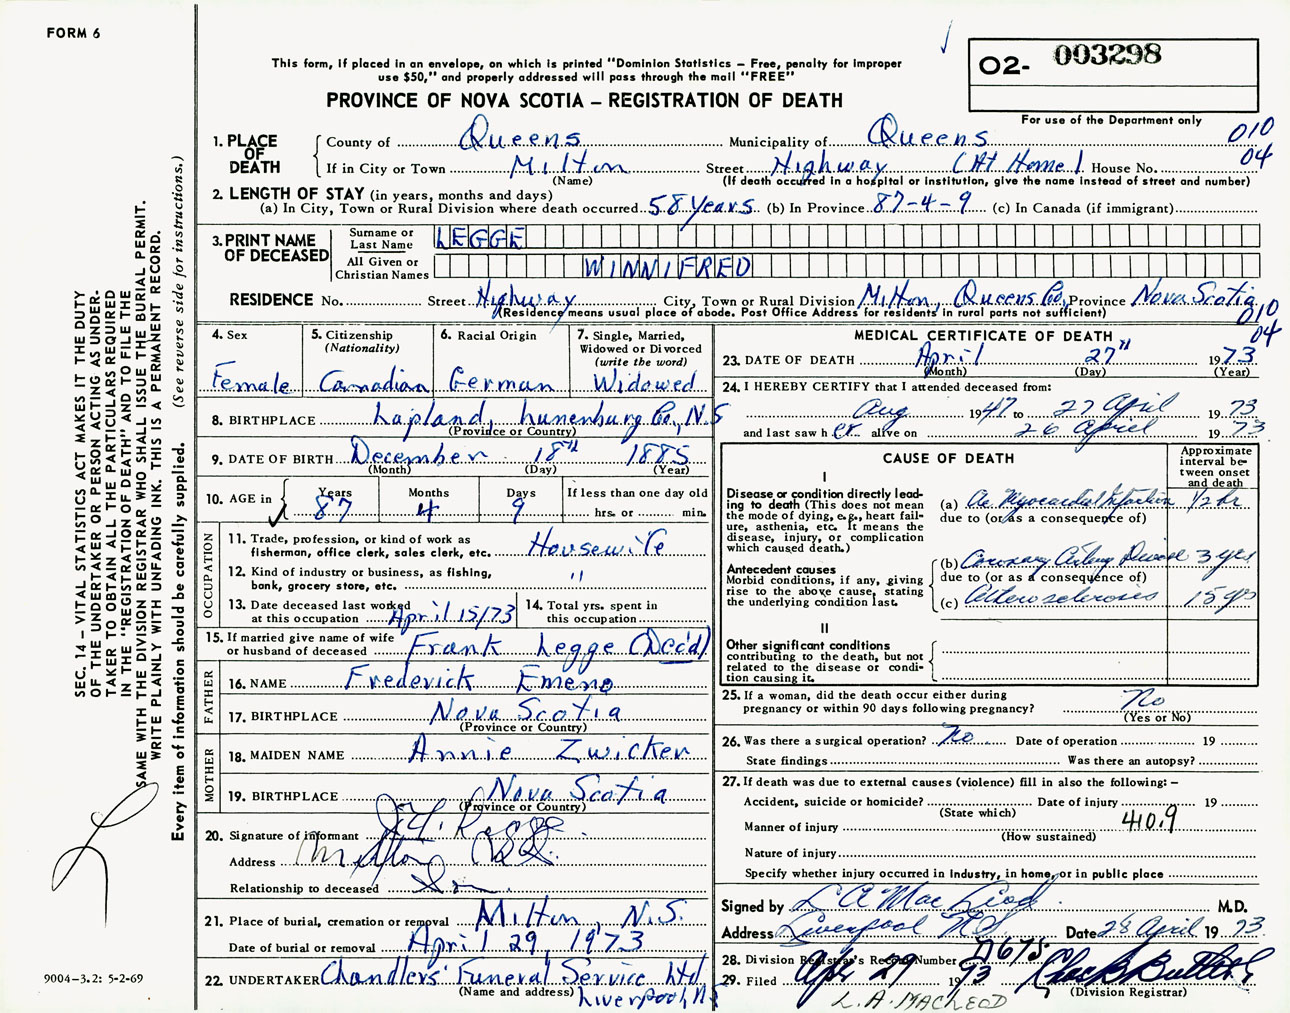 FORM 6
This form, if placed in an envelope, on which is printed "Dominion Statistics – Free, penalty for improper
use $50," and properly addressed will pass through the mail "FREE"
O2- 003298
PROVINCE OF NOVA SCOTIA – REGISTRATION OF DEATH
For use of the Department only
1. PLACE OF DEATH
County of Queens Municipality of Queens 010
04
If in City or Town Milton Street Highway (At Home) House No.
(Name) (If death occurred in a hospital or institution, give the name instead of street and number)
2. LENGTH OF STAY (in years, months and days)
(a) In City, Town or Rural Division where death occurred 58 years (b) In Province 87-4-9 (c) In Canada (if immigrant)
3. PRINT NAME OF DECEASED
Surname or Last Name LEGGE
All Given or Christian Names WINNIFRED
RESIDENCE No. Street Highway City, Town or Rural Division Milton, Queens Co, Province Nova Scotia
(Residence means usual place of abode. Post Office Address for residents in rural parts not sufficient) 010
04
4. Sex
Female
5. Citizenship
(Nationality)
Canadian
6. Racial Origin
German
7. Single, Married,
Widowed or Divorced
(write the word)
Widowed
8. BIRTHPLACE Lapland, Lunenburg Co., N.S
(Province or Country)
9. DATE OF BIRTH December 18th 1885
(Month) (Day) (Year)
10. AGE in
Years Months Days If less than one day old
87 4 9 hrs. or min.
OCCUPATION
11. Trade, profession, or kind of work as
fisherman, office clerk, sales clerk, etc. Housewife
12. Kind of industry or business, as fishing,
bank, grocery store, etc. "
13. Date deceased last worked
at this occupation April 15/73
14. Total yrs. spent in
this occupation
15. If married give name of wife
or husband of deceased Frank Legge (Dec'd)
FATHER
16. NAME Frederick Emeno
17. BIRTHPLACE Nova Scotia
(Province or Country)
MOTHER
18. MAIDEN NAME Annie Zwicker
19. BIRTHPLACE Nova Scotia
(Province or Country)
20. Signature of informant
Address Milton
Relationship to deceased Son
21. Place of burial, cremation or removal Milton, N.S.
Date of burial or removal April 29, 1973
22. UNDERTAKER Chandlers' Funeral Service Ltd
(Name and address) Liverpool, NS
MEDICAL CERTIFICATE OF DEATH
23. DATE OF DEATH April 27" 1973
(Month) (Day) (Year)
24. I HEREBY CERTIFY that I attended deceased from:
Aug 1947 to 27 April 1973
and last saw her alive on 26 April 1973
CAUSE OF DEATH
Approximate
interval be-
tween onset
and death
I
Disease or condition directly lead-
ing to death (This does not mean
the mode of dying, e.g., heart fail-
ure, asthenia, etc. It means the
disease, injury, or complication
which caused death.)
(a) Ac Myocardial Infarction 1/2 hr
due to (or as a consequence of)
Antecedent causes
Morbid conditions, if any, giving
rise to the above cause, stating
the underlying condition last.
(b) Coronary Artery Disease 3 yrs
due to (or as a consequence of)
(c) Atherosclerosis 15 yrs
II
Other significant conditions
contributing to the death, but not
related to the disease or condi-
tion causing it.
25. If a woman, did the death occur either during
pregnancy or within 90 days following pregnancy? No
(Yes or No)
26. Was there a surgical operation? No Date of operation 19
State findings Was there an autopsy?
27. If death was due to external causes (violence) fill in also the following:–
Accident, suicide or homicide? Date of injury 19
(State which)
Manner of injury 410.9
(How sustained)
Nature of injury
Specify whether injury occurred in industry, in home, or in public place
Signed by L A MacLeod M.D.
Address Liverpool NS Date 28 April 1973
28. Division Registrar's Record Number
29. Filed Apr 29 1973
(Division Registrar)
L. A. MACLEOD
SEC. 14 – VITAL STATISTICS ACT MAKES IT THE DUTY
OF THE UNDERTAKER OR PERSON ACTING AS UNDER-
TAKER TO OBTAIN ALL THE PARTICULARS REQUIRED
IN THE "REGISTRATION OF DEATH" AND TO FILE THE
SAME WITH THE DIVISION REGISTRAR WHO SHALL ISSUE THE BURIAL PERMIT.
WRITE PLAINLY WITH UNFADING INK. THIS IS A PERMANENT RECORD.
Every item of information should be carefully supplied. (See reverse side for instructions.)
9004–3.2: 5-2-69